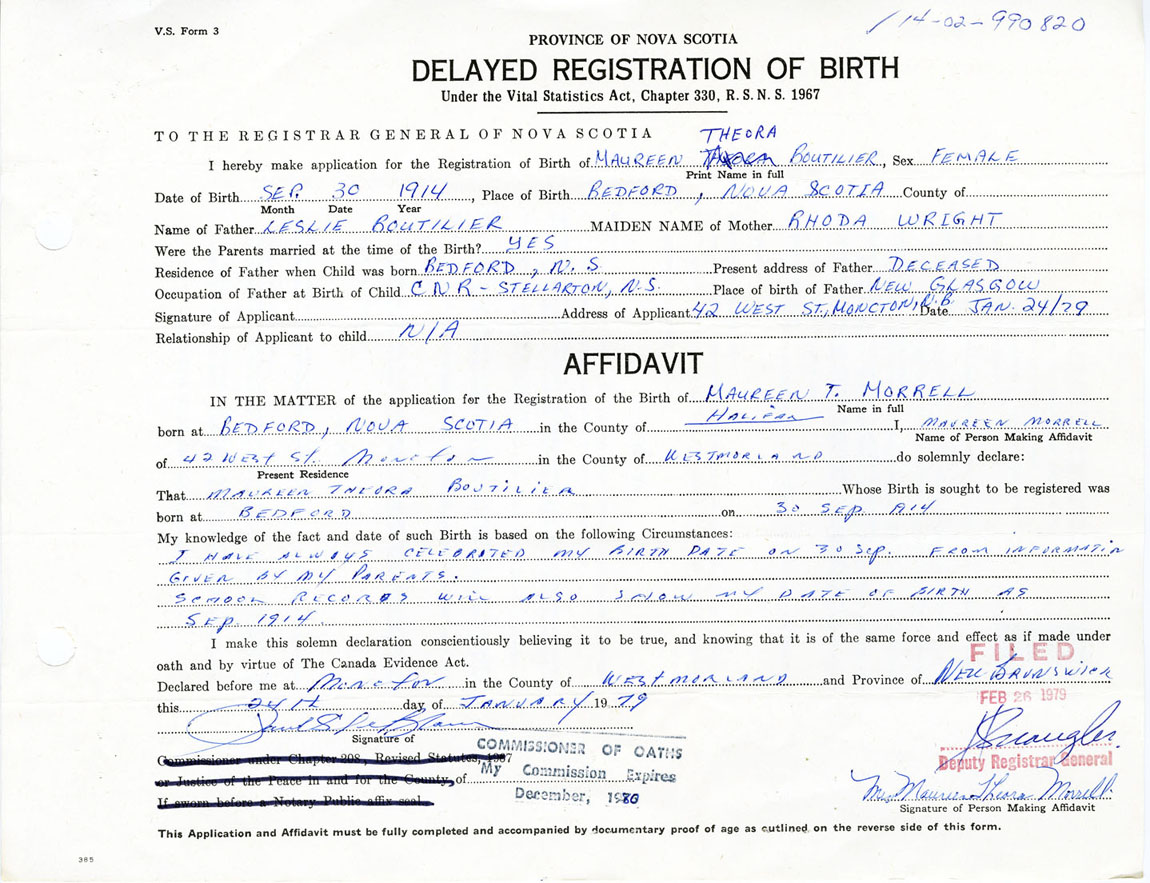 V.S. Form 3
14-02-990820
PROVINCE OF NOVA SCOTIA
DELAYED REGISTRATION OF BIRTH
Under the Vital Statistics Act, Chapter 330, R.S.N.S. 1967
TO THE REGISTRAR GENERAL OF NOVA SCOTIA THEORA
I hereby make application for the Registration of Birth of MAUREEN BOUTILIER, Sex FEMALE
Print Name in full
Date of Birth SEP. 30 1914, Place of Birth BEDFORD, NOVA SCOTIA County of
Month Date Year
Name of Father LESLIE BOUTILIER MAIDEN NAME of Mother RHODA WRIGHT
Were the Parents married at the time of the Birth? YES
Residence of Father when Child was born BEDFORD, N.S. Present address of Father DECEASED
Occupation of Father at Birth of Child C.N.R - STELLARTON, N.S. Place of birth of Father NEW GLASGOW
Signature of Applicant Address of Applicant 42 WEST ST., MONCTON, N.B Date JAN. 24/79
Relationship of Applicant to child N/A
AFFIDAVIT
IN THE MATTER of the application for the Registration of the Birth of MAUREEN T. MORRELL
Name in full
born at BEDFORD, NOVA SCOTIA in the County of Halifax I, MAUREEN MORRELL
Name of Person Making Affidavit
of 42 West St. Moncton in the County of WESTMORLAND do solemnly declare:
Present Residence
That MAUREEN THEORA BOUTILIER Whose Birth is sought to be registered was
born at BEDFORD on 30 SEP. 1914
My knowledge of the fact and date of such Birth is based on the following Circumstances:
I HAVE ALWAYS CELEBRATED MY BIRTH DATE ON 30 SEP. FROM INFORMATION
GIVEN BY MY PARENTS.
SCHOOL RECORDS WILL ALSO SHOW MY DATE OF BIRTH AS
SEP. 1914.
I make this solemn declaration conscientiously believing it to be true, and knowing that it is of the same force and effect as if made under
oath and by virtue of The Canada Evidence Act.
FILED
Declared before me at Moncton in the County of WESTMORLAND and Province of NEW BRUNSWICK
this 24th day of JANUARY 1979
FEB 26 1979
Signature of
COMMISSIONER OF OATHS
Commissioner under Chapter 298, Revised Statutes, 1967
or Justice of the Peace in and for the County of
My Commission Expires
Deputy Registrar General
If sworn before a Notary Public affix seal.
December, 1980
Mrs Maureen Theora Morrell
Signature of Person Making Affidavit
This Application and Affidavit must be fully completed and accompanied by documentary proof of age as outlined on the reverse side of this form.
385